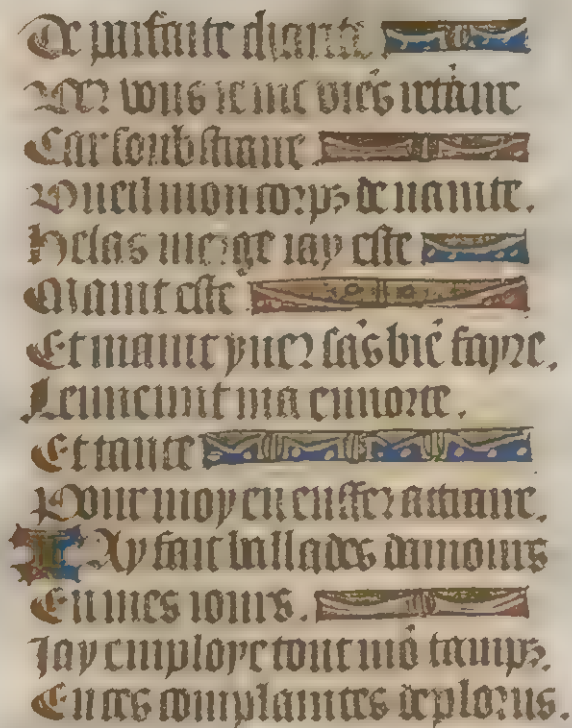 De parfaite charite
Vers vous ie me viēs retraire
Car soubstraire
Vueil mon corps de vanite.
Helas vierge iay este
Maint este
Et maint yuer sās biē fayre.
Lennemint ma ennorte.
Et tante
Pour moy en enffer attraire.
Ie Ay fait ballades damours
En mes iours.
Jay employe tout mō tamps.
En ces complaintes de plorus.